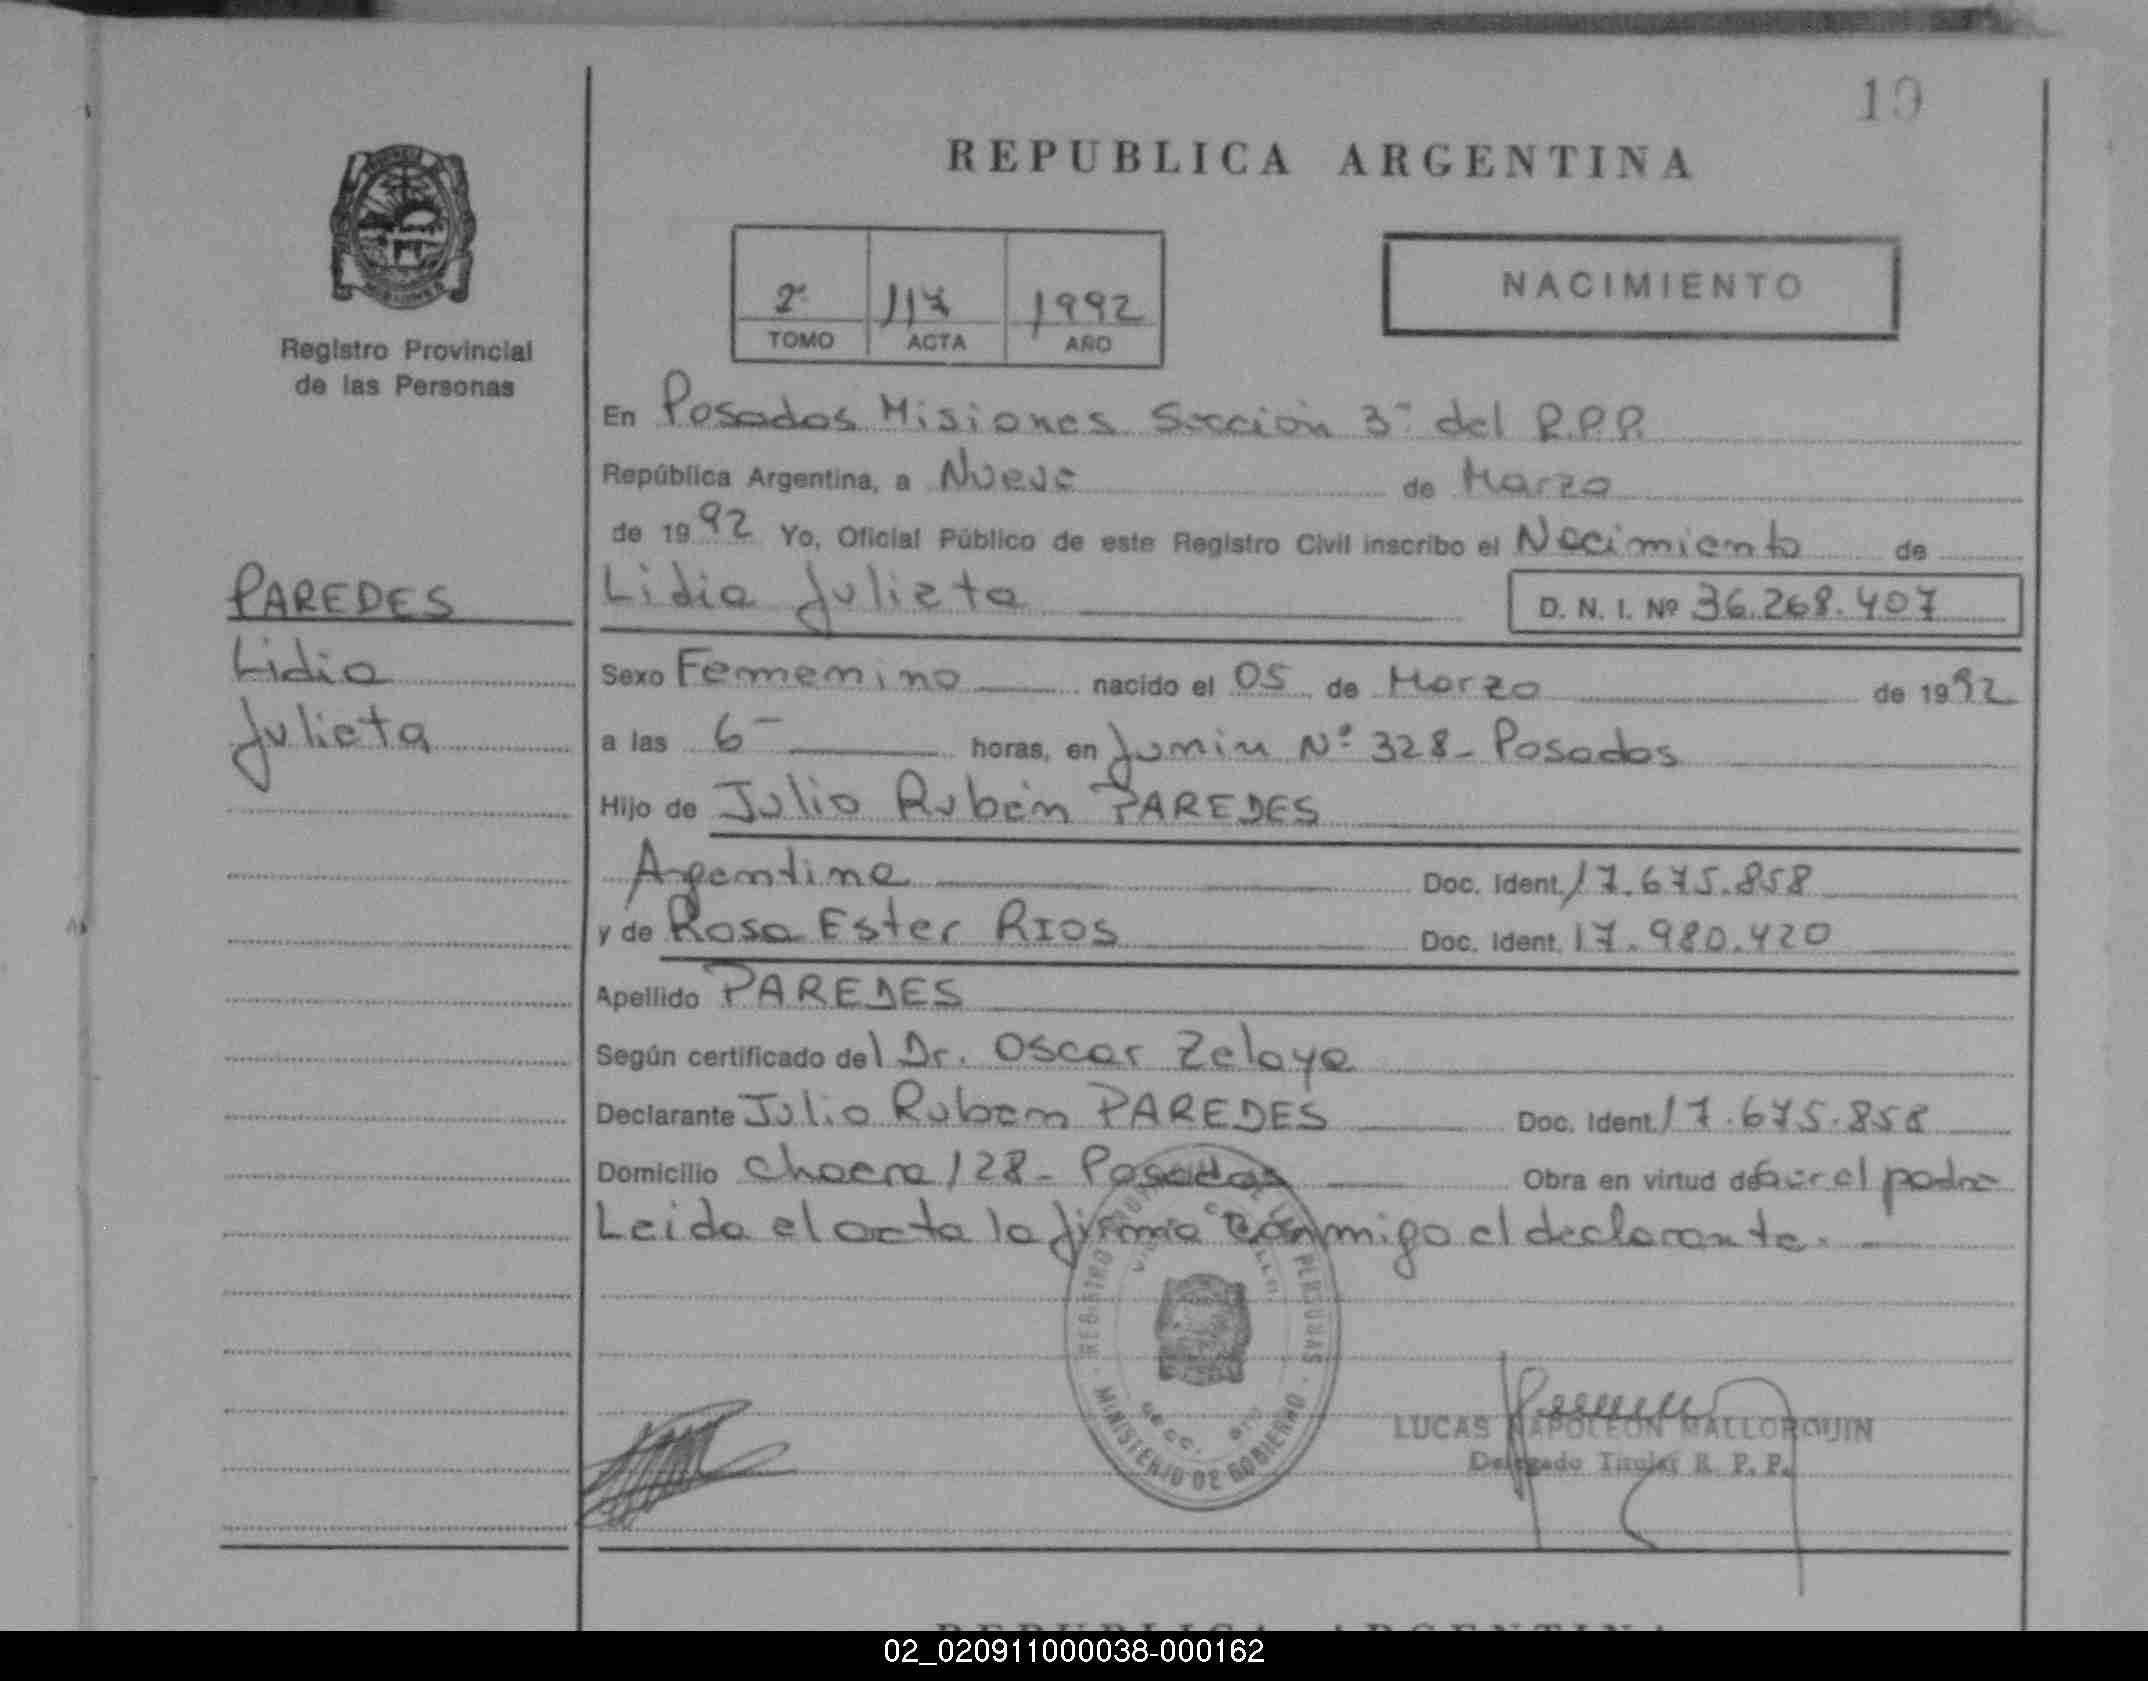 10
REPUBLICA ARGENTINA
NACIMIENTO
2º 117 1992
TOMO ACTA AÑO
Registro Provincial
de las Personas
En Posadas Misiones Sección 3ª del R.P.P.
República Argentina, a Nueve de Marzo
de 1992 Yo, Oficial Público de este Registro Civil inscribo el Nacimiento de
PAREDES
Lidia
Julieta
Lidia Julieta D. N. I. Nº 36.268.407
Sexo Femenino nacido el 05 de Marzo de 1992
a las 6 horas, en Junin Nº 328 - Posadas
Hijo de Julio Rubén PAREDES
Argentina Doc. Ident. 17.675.858
y de Rosa Ester RIOS Doc. Ident. 17.980.420
Apellido PAREDES
Según certificado del Dr. Oscar Zelaya
Declarante Julio Ruben PAREDES Doc. Ident. 17.675.858
Domicilio Chacra 128 - Posadas Obra en virtud de Ser el padre
Leida el acta la firma conmigo el declarante.
REGISTRO PERSONAS
MINISTERIO DE GOBIERNO
LUCAS NAPOLEON MALLORQUIN
Delegado Titular R. P. P.
REPUBLICA ARGENTINA
02_020911000038-000162